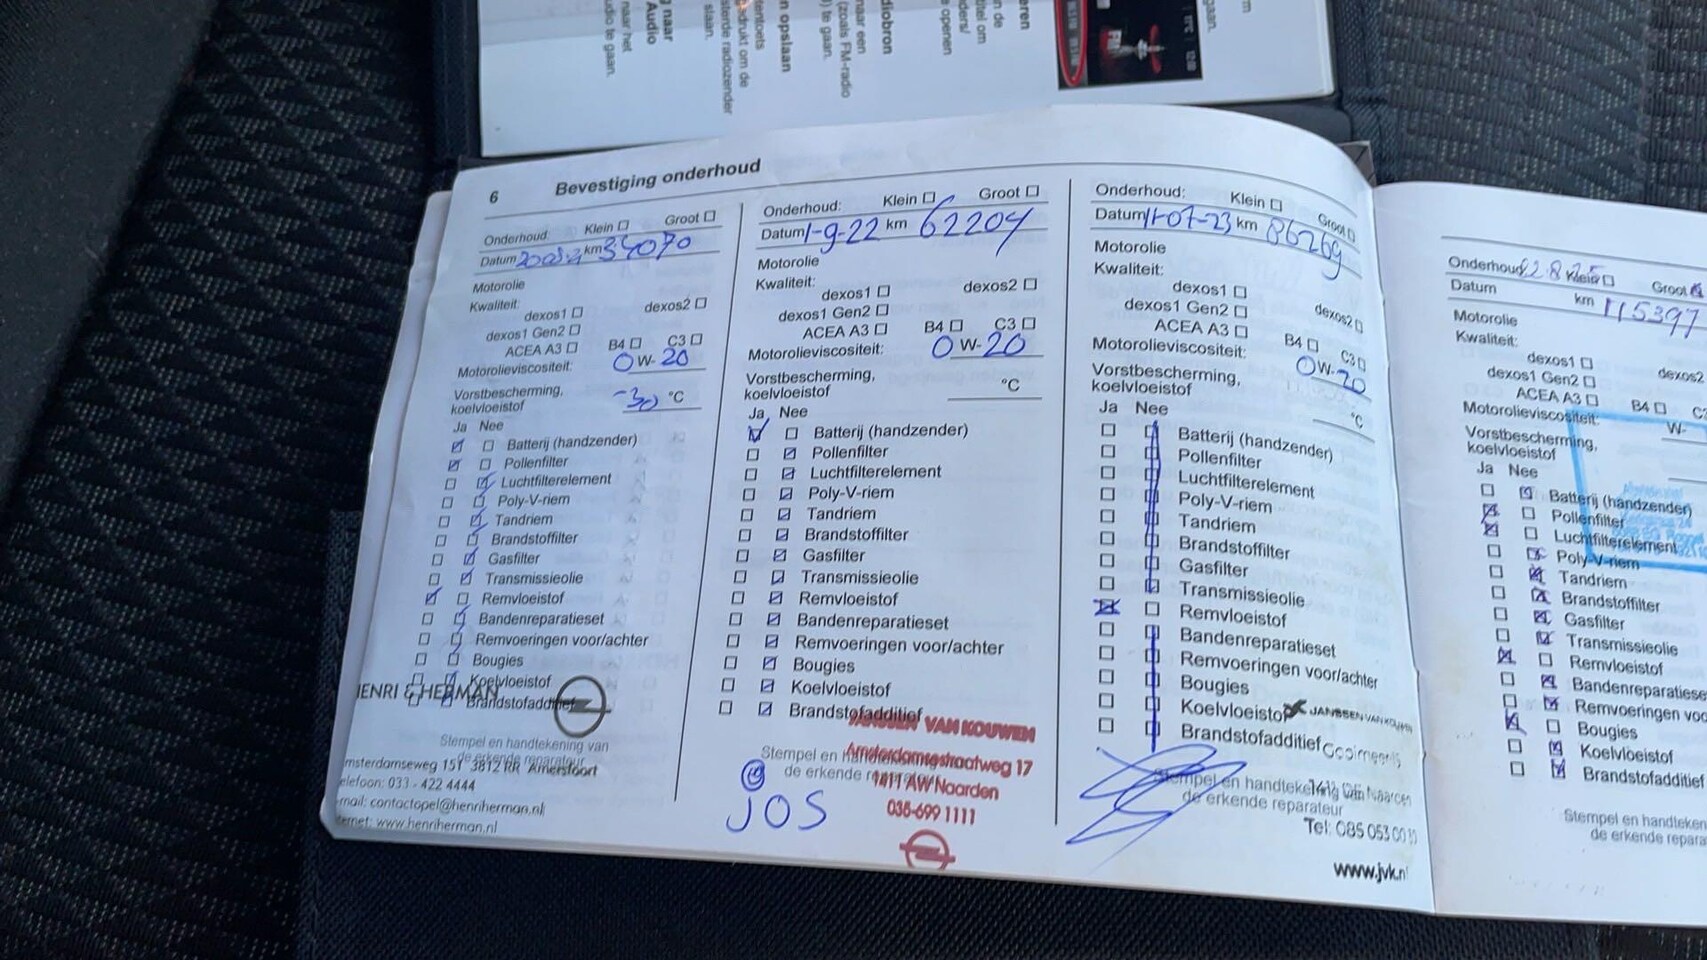 6 Bevestiging onderhoud
Onderhoud: Klein Groot
Datum km 34070
Motorolie
Kwaliteit:
dexos1 dexos2
dexos1 Gen2
ACEA A3 B4 C3
Motorolieviscositeit: 0 W- 20
Vorstbescherming,
koelvloeistof -30 °C
Ja Nee
Batterij (handzender)
Pollenfilter
Luchtfilterelement
Poly-V-riem
Tandriem
Brandstoffilter
Gasfilter
Transmissieolie
Remvloeistof
Bandenreparatieset
Remvoeringen voor/achter
Bougies
Koelvloeistof
Brandstofadditief
HENRI & HERMAN
Stempel en handtekening van
de erkende reparateur
msterdamseweg 151 3812 RR Amersfoort
elefoon: 033 - 422 4444
mail: contactopel@henriherman.nl
ernet: www.henriherman.nl
Onderhoud: Klein Groot
Datum 1-9-22 km 62204
Motorolie
Kwaliteit:
dexos1 dexos2
dexos1 Gen2
ACEA A3 B4 C3
Motorolieviscositeit: 0 W- 20
Vorstbescherming,
koelvloeistof °C
Ja Nee
Batterij (handzender)
Pollenfilter
Luchtfilterelement
Poly-V-riem
Tandriem
Brandstoffilter
Gasfilter
Transmissieolie
Remvloeistof
Bandenreparatieset
Remvoeringen voor/achter
Bougies
Koelvloeistof
Brandstofadditief
JANSSEN VAN KOUWEN
Amsterdamsestraatweg 17
1411 AW Naarden
035-699 1111
Stempel en handtekening van
de erkende reparateur
JOS
Onderhoud: Klein Groot
Datum 11-07-23 km 86269
Motorolie
Kwaliteit:
dexos1 dexos2
dexos1 Gen2
ACEA A3 B4 C3
Motorolieviscositeit: 0 W- 20
Vorstbescherming,
koelvloeistof °C
Ja Nee
Batterij (handzender)
Pollenfilter
Luchtfilterelement
Poly-V-riem
Tandriem
Brandstoffilter
Gasfilter
Transmissieolie
Remvloeistof
Bandenreparatieset
Remvoeringen voor/achter
Bougies
Koelvloeistof
Brandstofadditief
JANSSEN VAN KOUWEN
Gooimeer
Stempel en handtekening van
de erkende reparateur
Naarden
Tel: 085 053 00
www.jvk.nl
Onderhoud: Klein Groot
Datum km 115397
Motorolie
Kwaliteit:
dexos1 dexos2
dexos1 Gen2
ACEA A3 B4 C
Motorolieviscositeit: W-
Vorstbescherming,
koelvloeistof
Ja Nee
Batterij (handzender)
Pollenfilter
Luchtfilterelement
Poly-V-riem
Tandriem
Brandstoffilter
Gasfilter
Transmissieolie
Remvloeistof
Bandenreparatiese
Remvoeringen voo
Bougies
Koelvloeistof
Brandstofadditief
Stempel en handteken
de erkende repara